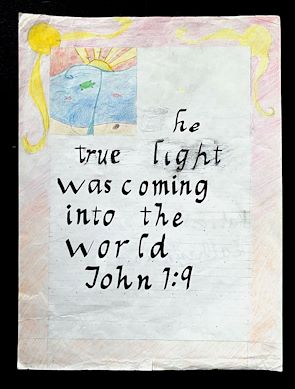 The
true light
was coming
into the
world
John 1:9